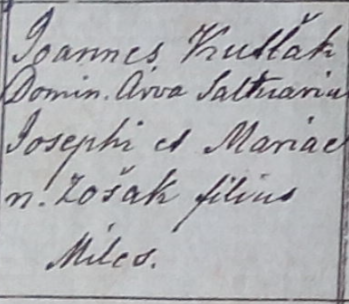 Joannes Kutlák
Domin. Arva Saltuariu
Josephi et Mariae
n. Zošák filius
Miles.